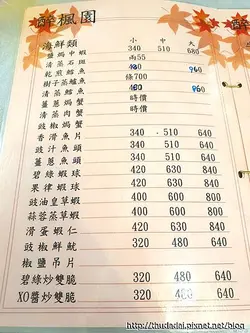 醉楓園
海鮮類 小 中 大
鹽焗中蝦 340 510 680
清蒸石斑 兩55
乾煎鱈魚 480 960
樹子蒸鱸魚 條700
清蒸鱈魚 480 960
薑蔥焗蟹 時價
清蒸肉蟹 時價
豉椒焗蟹
香滑魚片 340 510 640
豉汁魚頭 340 510 640
薑蔥魚頭 340 510 640
碧綠蝦球 420 630 840
果律蝦球 420 630 840
豉油皇草蝦 400 600 800
蒜蓉蒸草蝦 400 600 800
滑蛋蝦仁 420 630 840
豉椒鮮魷 320 480 640
椒鹽吊片
碧綠炒雙脆 320 480 640
XO醬炒雙脆 320 480 640
http://thudadai.pixnet.net/blog